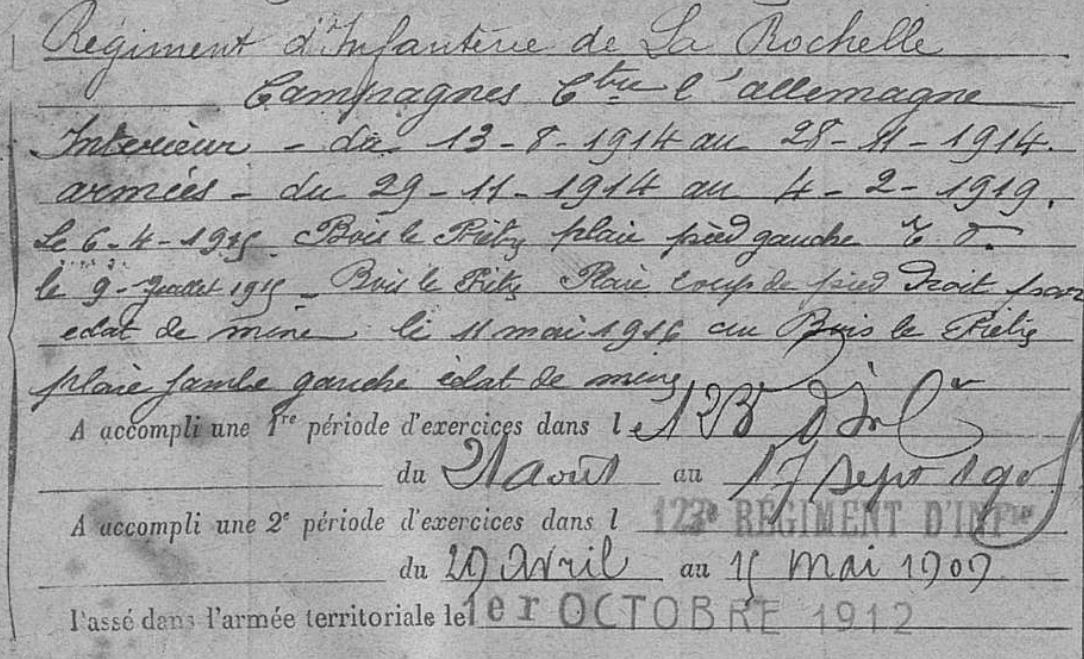 Régiment d'Infanterie de La Rochelle
Campagnes Ctre l'allemagne
Intérieur - du 13-8-1914 au 28-11-1914.
armées - du 29-11-1914 au 4-2-1919.
Le 6-4-1915 Bois le Prêtre plaie pied gauche
le 9-Juillet 1915 - Bois le Prêtre Plaie coup de pied droit par
éclat de mine le 11 mai 1916 au Bois le Prêtre
plaie jambe gauche éclat de mine
A accompli une 1re période d'exercices dans le 123e d'Inf
du 21 Août au 17 Sept 1905
A accompli une 2e période d'exercices dans l 123e RÉGIMENT D'INFie
du 29 Avril au 15 Mai 1909
Passé dans l'armée territoriale le 1er OCTOBRE 1912